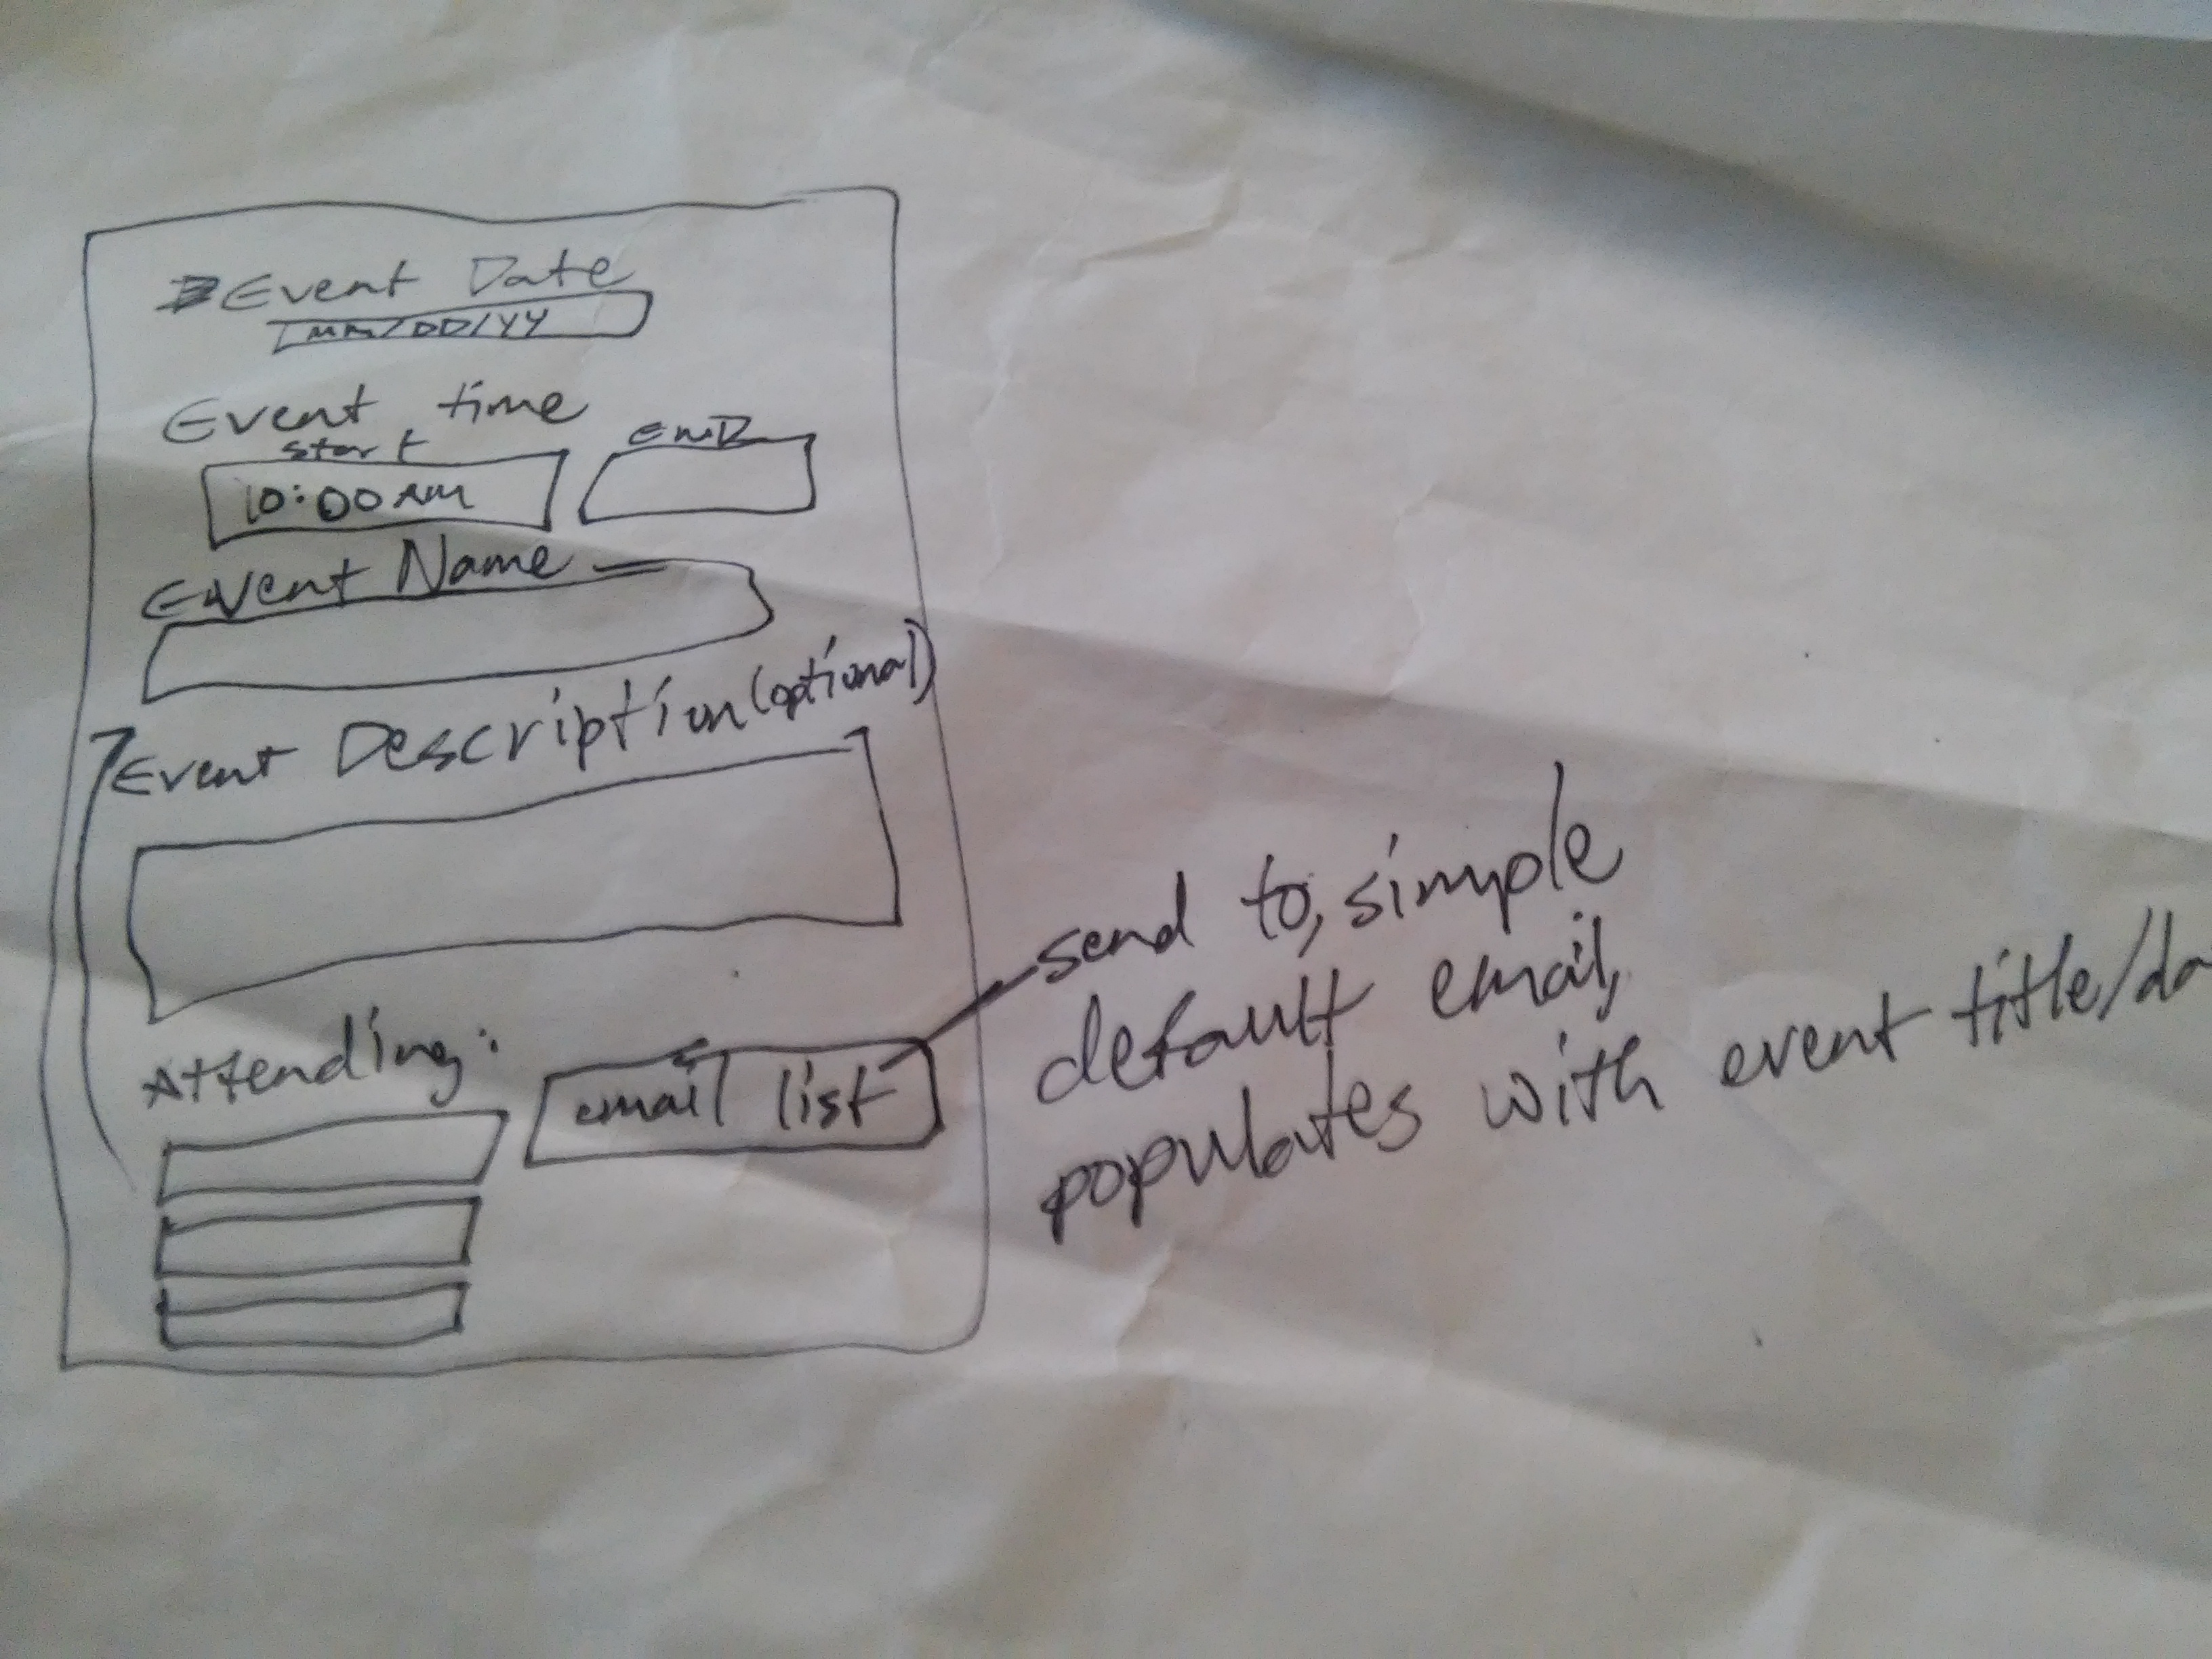 Event Date
MM/DD/YY
Event time
start END
10:00 AM
Event Name
Event Description (optional)
Attending:
email list
send to, simple
default email,
populates with event title/da